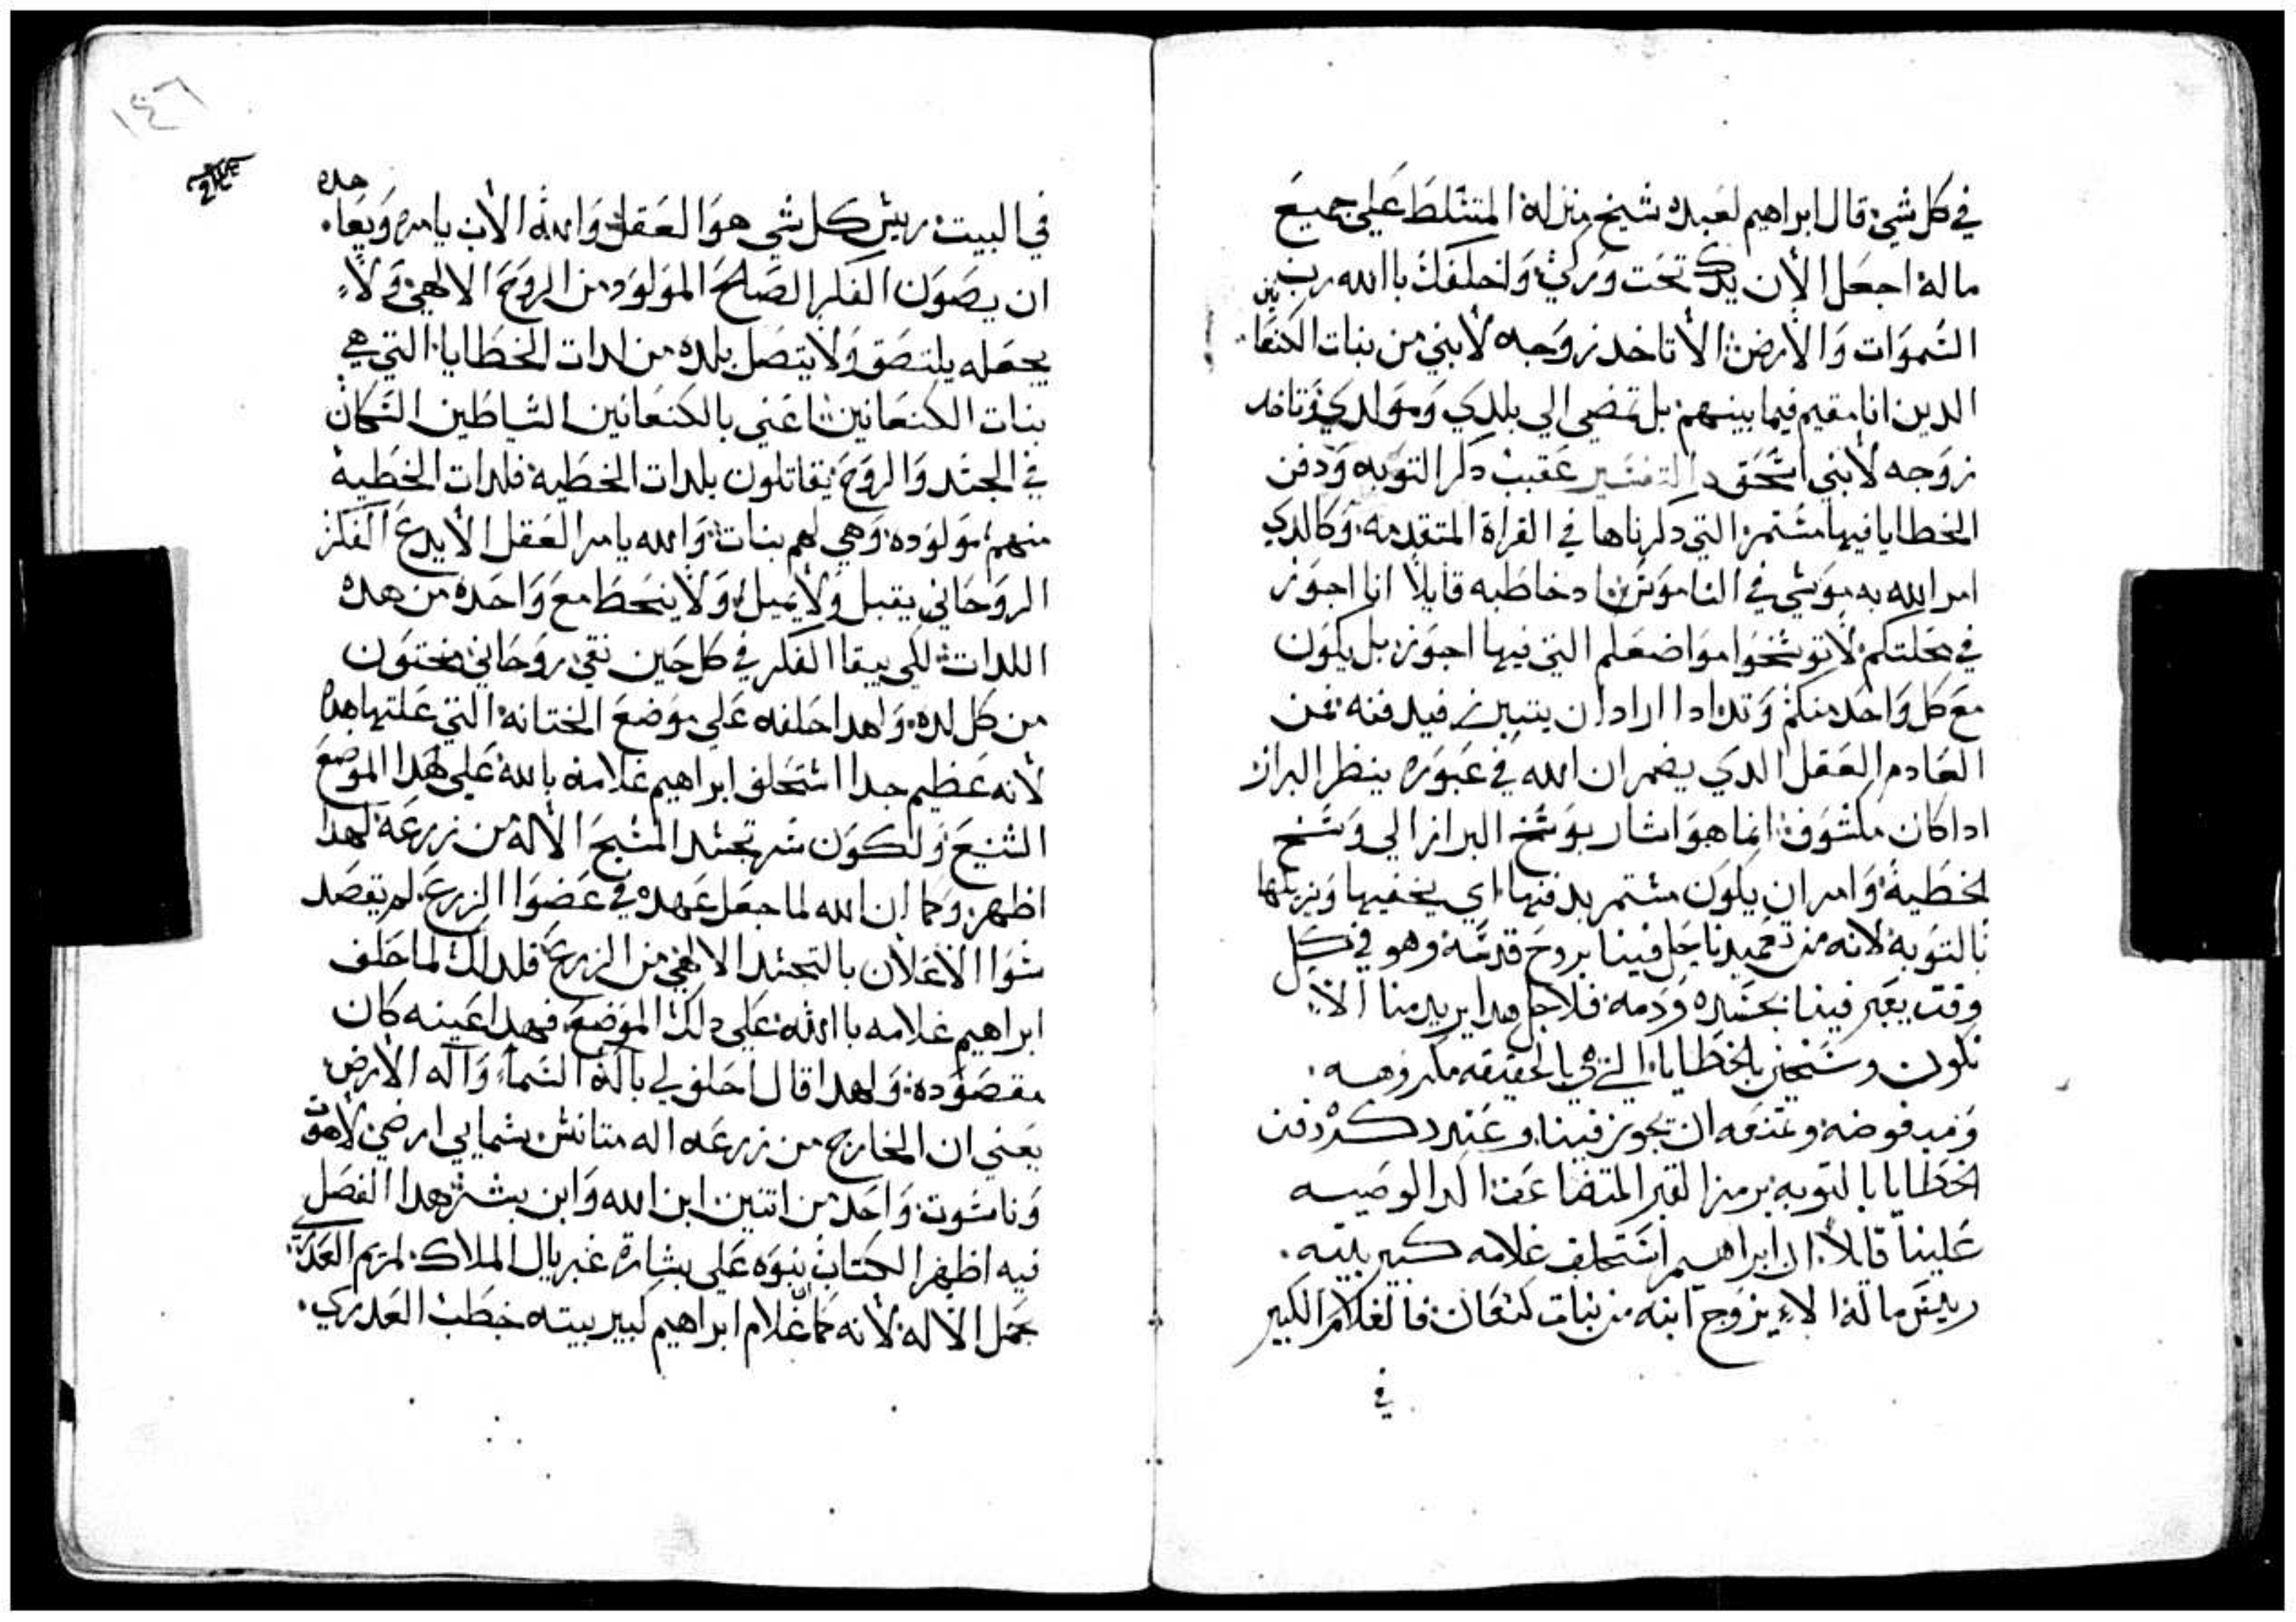 في كل شي قال ابراهيم لعبده شيخ منزله المتسلط علي جميع
ماله اجعل الان يدك تحت وركي واحلفك باالله رب
السموات والارض الا تاخد زوجه لابني من بنات الكنعانين
الدين انا مقيم فيما بينهم بل تمضي الي بلدي ومولدي وتاخد
زوجه لابني اسحق التفسير عقيب دكر التوبه ودفن
الخطايا فيها مستمر التي دكرناها في القراة المتقدمه وكالدي
امر الله به موسي في الناموس اد خاطبه قايلا انا اجوز
في محلتكم لا توسخوا مواضعكم التي فيها اجوز بل يكون
مع كل واحد منكم وتد ادا اراد ان يتبرز فيدفنه فمن
العادم العقل الدي يضمر ان الله في عبوره ينظر البراز
ادا كان مكشوف انما هو اشار بوسخ البراز الي وسخ
الخطية وامر ان يكون مستمر بدفنها اي يخفيها ويزيلها
بالتوبة لانه من تعميدنا حل فينا بروح قدسه وهو في كل
وقت يعبر فينا بجسده ودمه فلاجل هدا يريد منا الا
نكون وسخين بالخطايا التي هي بالحقيقه مكروهه
ومرفوضه وعند دكر دفن
الخطايا بالتوبه برمز القبر المتضاعف اكد الوصيه
علينا قايلا ان ابراهيم استحلف غلامه كبير بيته
رييس ماله الا يزوج ابنه من بنات كنعان فالغلام الكبير
في
١٤٦
في البيت رييس كل شي هو العقل والله الاب يامره ويعاهده
ان يصون الفكر الصالح المولود من الروح الالهي ولا
يجعله يلتصق ولا يتصل بلده من لدات الخطايا التي هي
بنات الكنعانين اعني بالكنعانين الشياطين السكان
في الجسد والروح يقاتلون بلدات الخطية فلدات الخطية
منهم مولوده وهي لهم بنات والله يامر العقل الا يدع الفكر
الروحاني يقبل ولا يميل ولا ينحط مع واحدة من هده
اللدات لكي يبقا الفكر في كل حين نقي روحاني مختون
من كل لده ولهدا حلفه علي موضع الختانه التي علتها هدا
لانه عظيم جدا استحلف ابراهيم غلامه بالله علي هدا الموضع
الشنيع ولكون سر تجسد المسيح الاله من زرعه لهدا
اظهر وكما ان الله لما جعل عهده في عضوا الزرع لم يقصد
سوا الاعلان بالتجسد الالهي من الزرع فلدلك لما حلف
ابراهيم غلامه باالله علي دلك الموضع فهدا عينه كان
مقصوده ولهدا قال احلف لي بااله السما واله الارض
يعني ان الخارج من زرعه اله متانس سمايي ارضي لاهوت
وناسوت واحد من اتنين ابن الله وابن بشر هدا الفصل
فيه اظهر الكتاب نبوه علي بشارة غبريال الملاك لمريم العدري
بحمل الاله لانه كما غلام ابراهيم كبير بيته خطب العدري